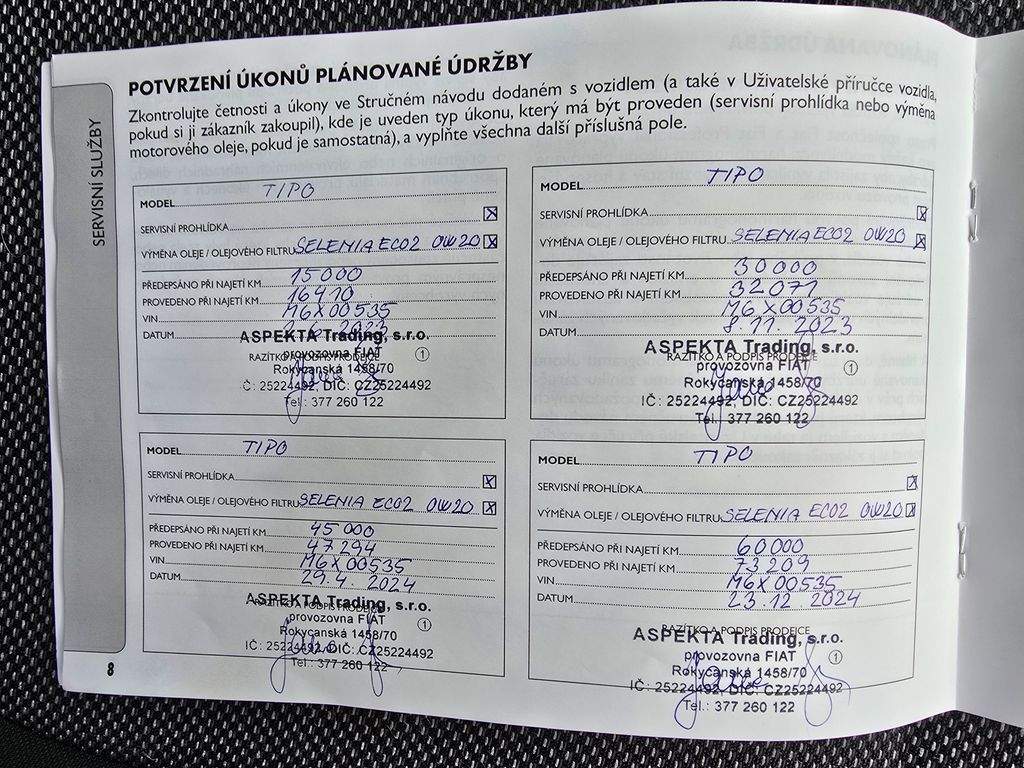 POTVRZENÍ ÚKONŮ PLÁNOVANÉ ÚDRŽBY
Zkontrolujte četnosti a úkony ve Stručném návodu dodaném s vozidlem (a také v Uživatelské příručce vozidla,
pokud si ji zákazník zakoupil), kde je uveden typ úkonu, který má být proveden (servisní prohlídka nebo výměna
motorového oleje, pokud je samostatná), a vyplňte všechna další příslušná pole.
SERVISNÍ SLUŽBY
MODEL TIPO
SERVISNÍ PROHLÍDKA X
VÝMĚNA OLEJE / OLEJOVÉHO FILTRU SELENIA ECO2 0W20 X
PŘEDEPSÁNO PŘI NAJETÍ KM 15000
PROVEDENO PŘI NAJETÍ KM 16410
VIN M6X00535
DATUM 2.6. 2023
ASPEKTA Trading, s.r.o.
RAZÍTKO A PODPIS PRODEJCE
provozovna FIAT 1
Rokycanská 1458/70
IČ: 25224492, DIČ: CZ25224492
Tel.: 377 260 122
MODEL TIPO
SERVISNÍ PROHLÍDKA X
VÝMĚNA OLEJE / OLEJOVÉHO FILTRU SELENIA ECO2 0W20 X
PŘEDEPSÁNO PŘI NAJETÍ KM 30000
PROVEDENO PŘI NAJETÍ KM 32071
VIN M6X00535
DATUM 8.11. 2023
ASPEKTA Trading, s.r.o.
RAZÍTKO A PODPIS PRODEJCE
provozovna FIAT 1
Rokycanská 1458/70
IČ: 25224492, DIČ: CZ25224492
Tel.: 377 260 122
MODEL TIPO
SERVISNÍ PROHLÍDKA X
VÝMĚNA OLEJE / OLEJOVÉHO FILTRU SELENIA ECO2 0W20 X
PŘEDEPSÁNO PŘI NAJETÍ KM 45000
PROVEDENO PŘI NAJETÍ KM 47294
VIN M6X00535
DATUM 29.4. 2024
ASPEKTA Trading, s.r.o.
RAZÍTKO A PODPIS PRODEJCE
provozovna FIAT 1
Rokycanská 1458/70
IČ: 25224492, DIČ: CZ25224492
Tel.: 377 260 122
MODEL TIPO
SERVISNÍ PROHLÍDKA X
VÝMĚNA OLEJE / OLEJOVÉHO FILTRU SELENIA ECO2 0W20 X
PŘEDEPSÁNO PŘI NAJETÍ KM 60000
PROVEDENO PŘI NAJETÍ KM 73209
VIN M6X00535
DATUM 23.12. 2024
RAZÍTKO A PODPIS PRODEJCE
ASPEKTA Trading, s.r.o.
provozovna FIAT 1
Rokycanská 1458/70
IČ: 25224492, DIČ: CZ25224492
Tel.: 377 260 122
8